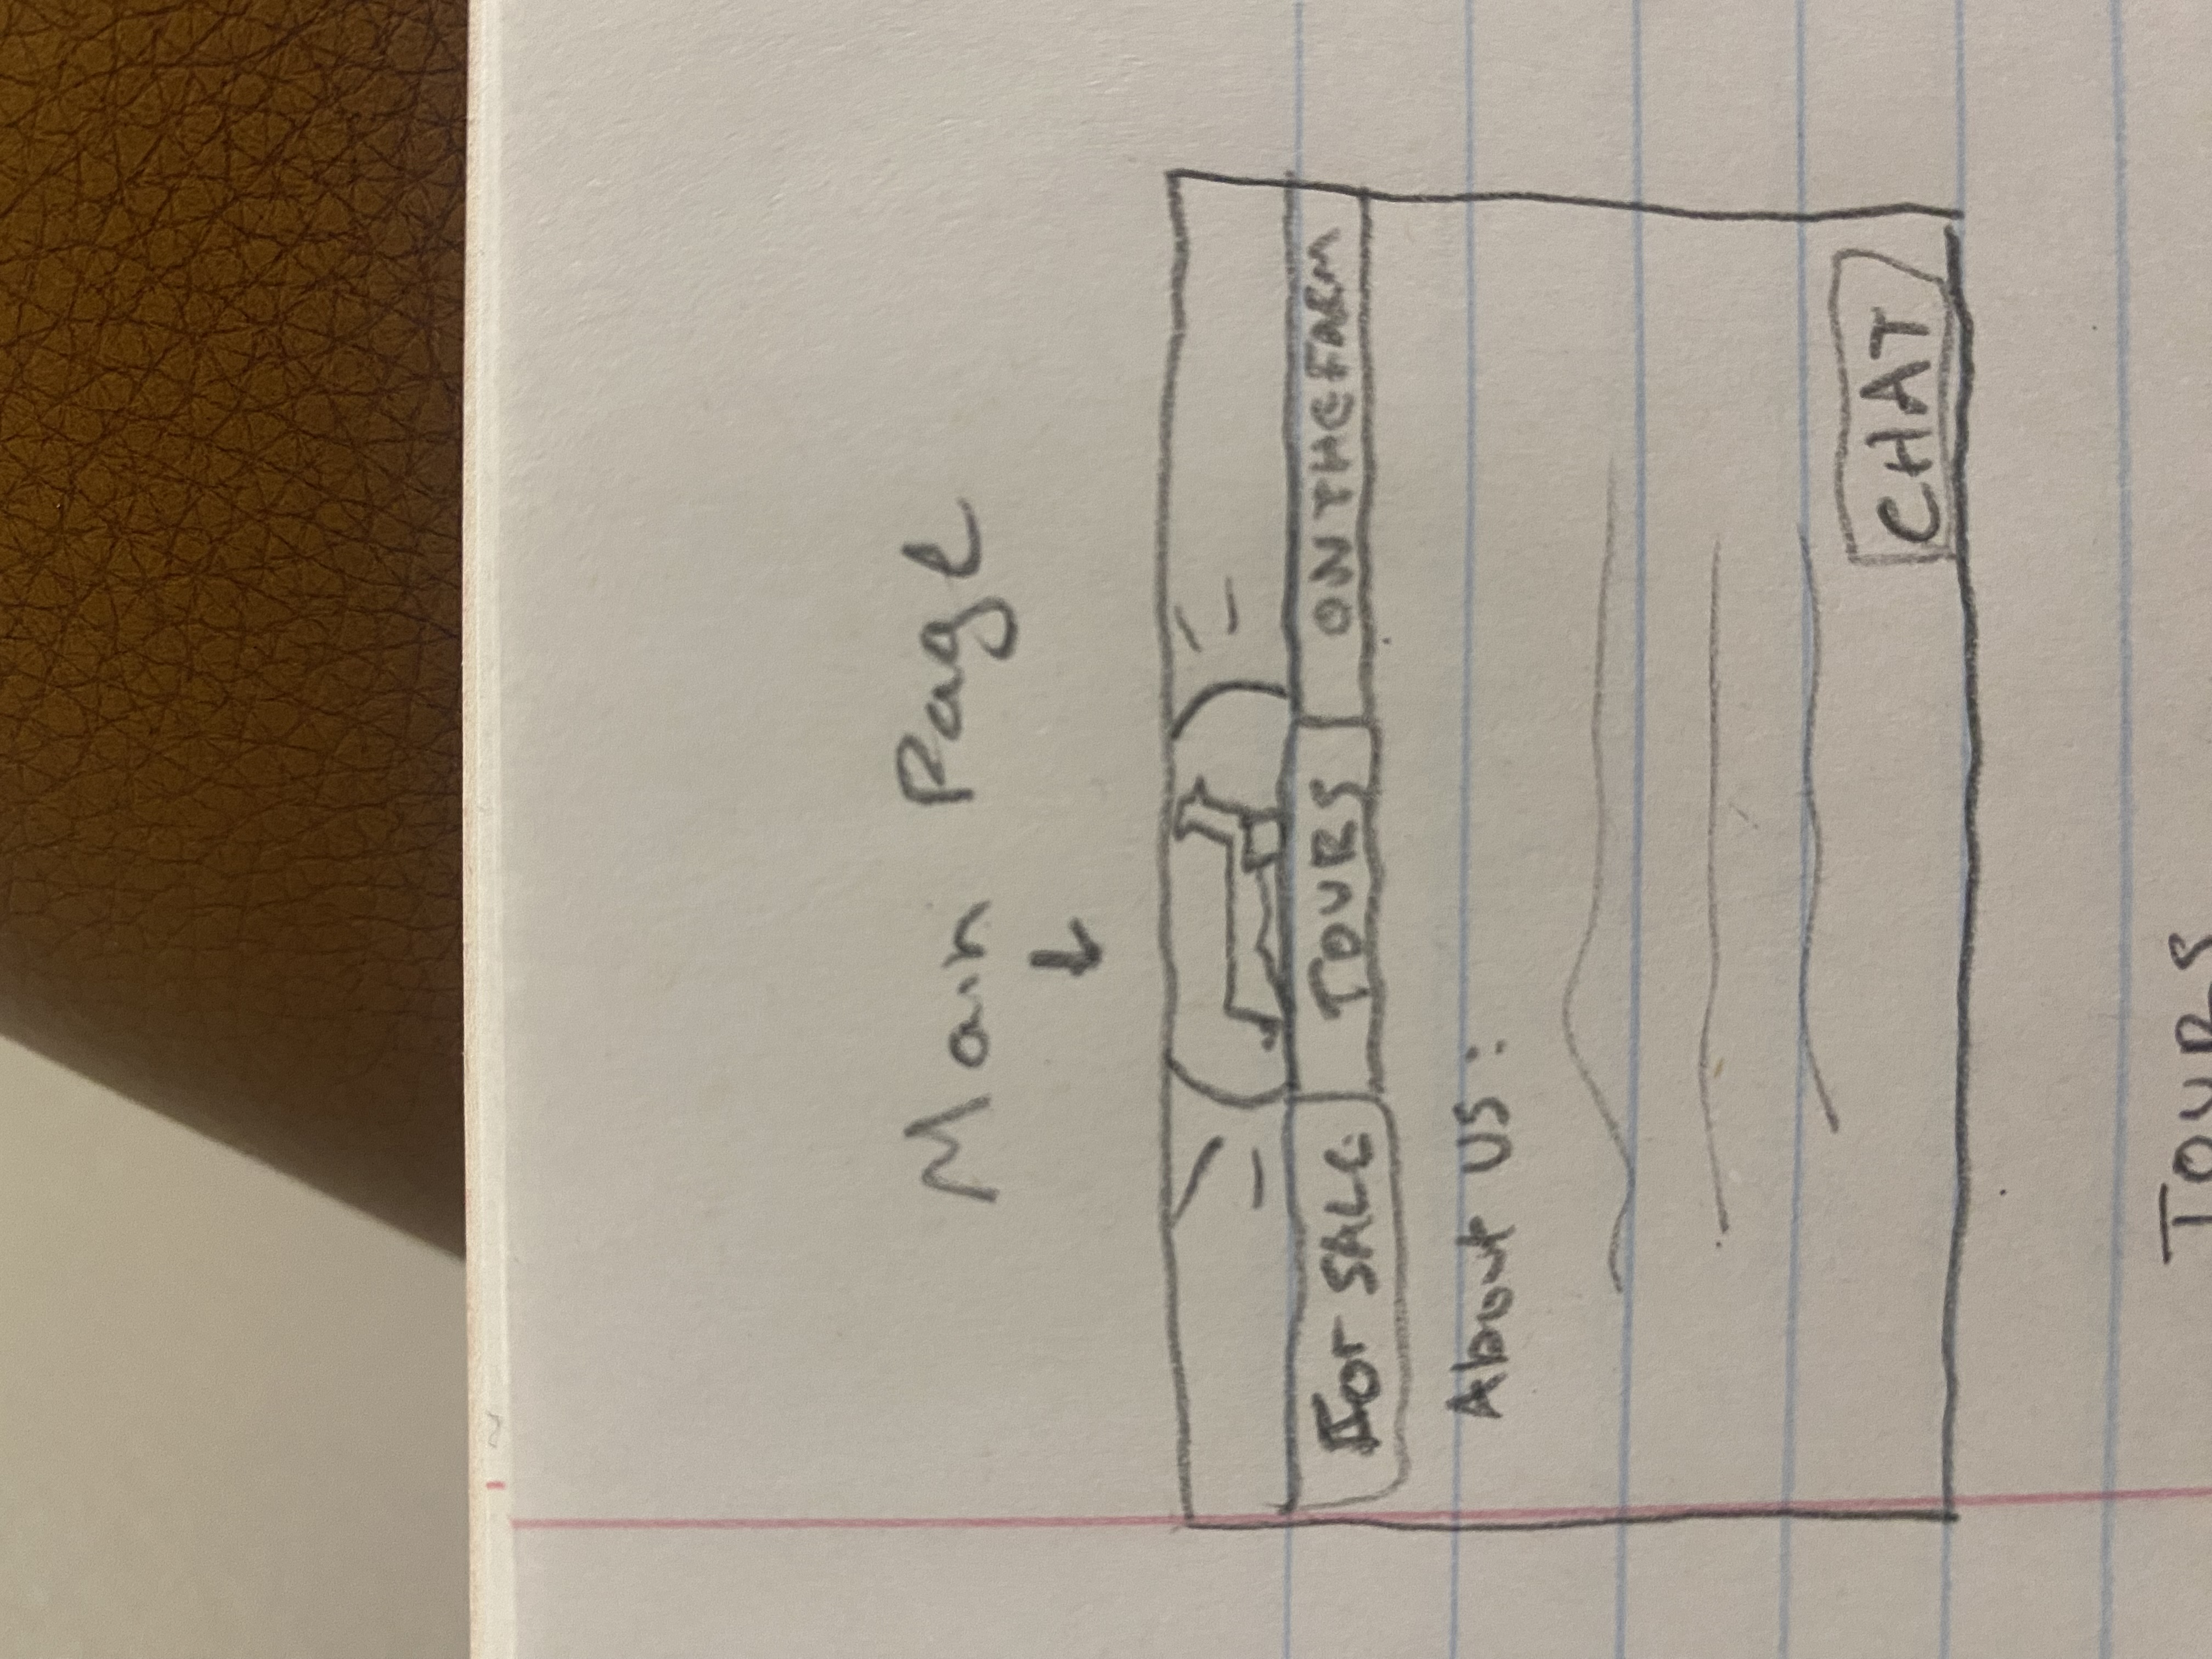 Main Page
For SALE TOURS ON THE FARM
About US:
CHAT
TOURS